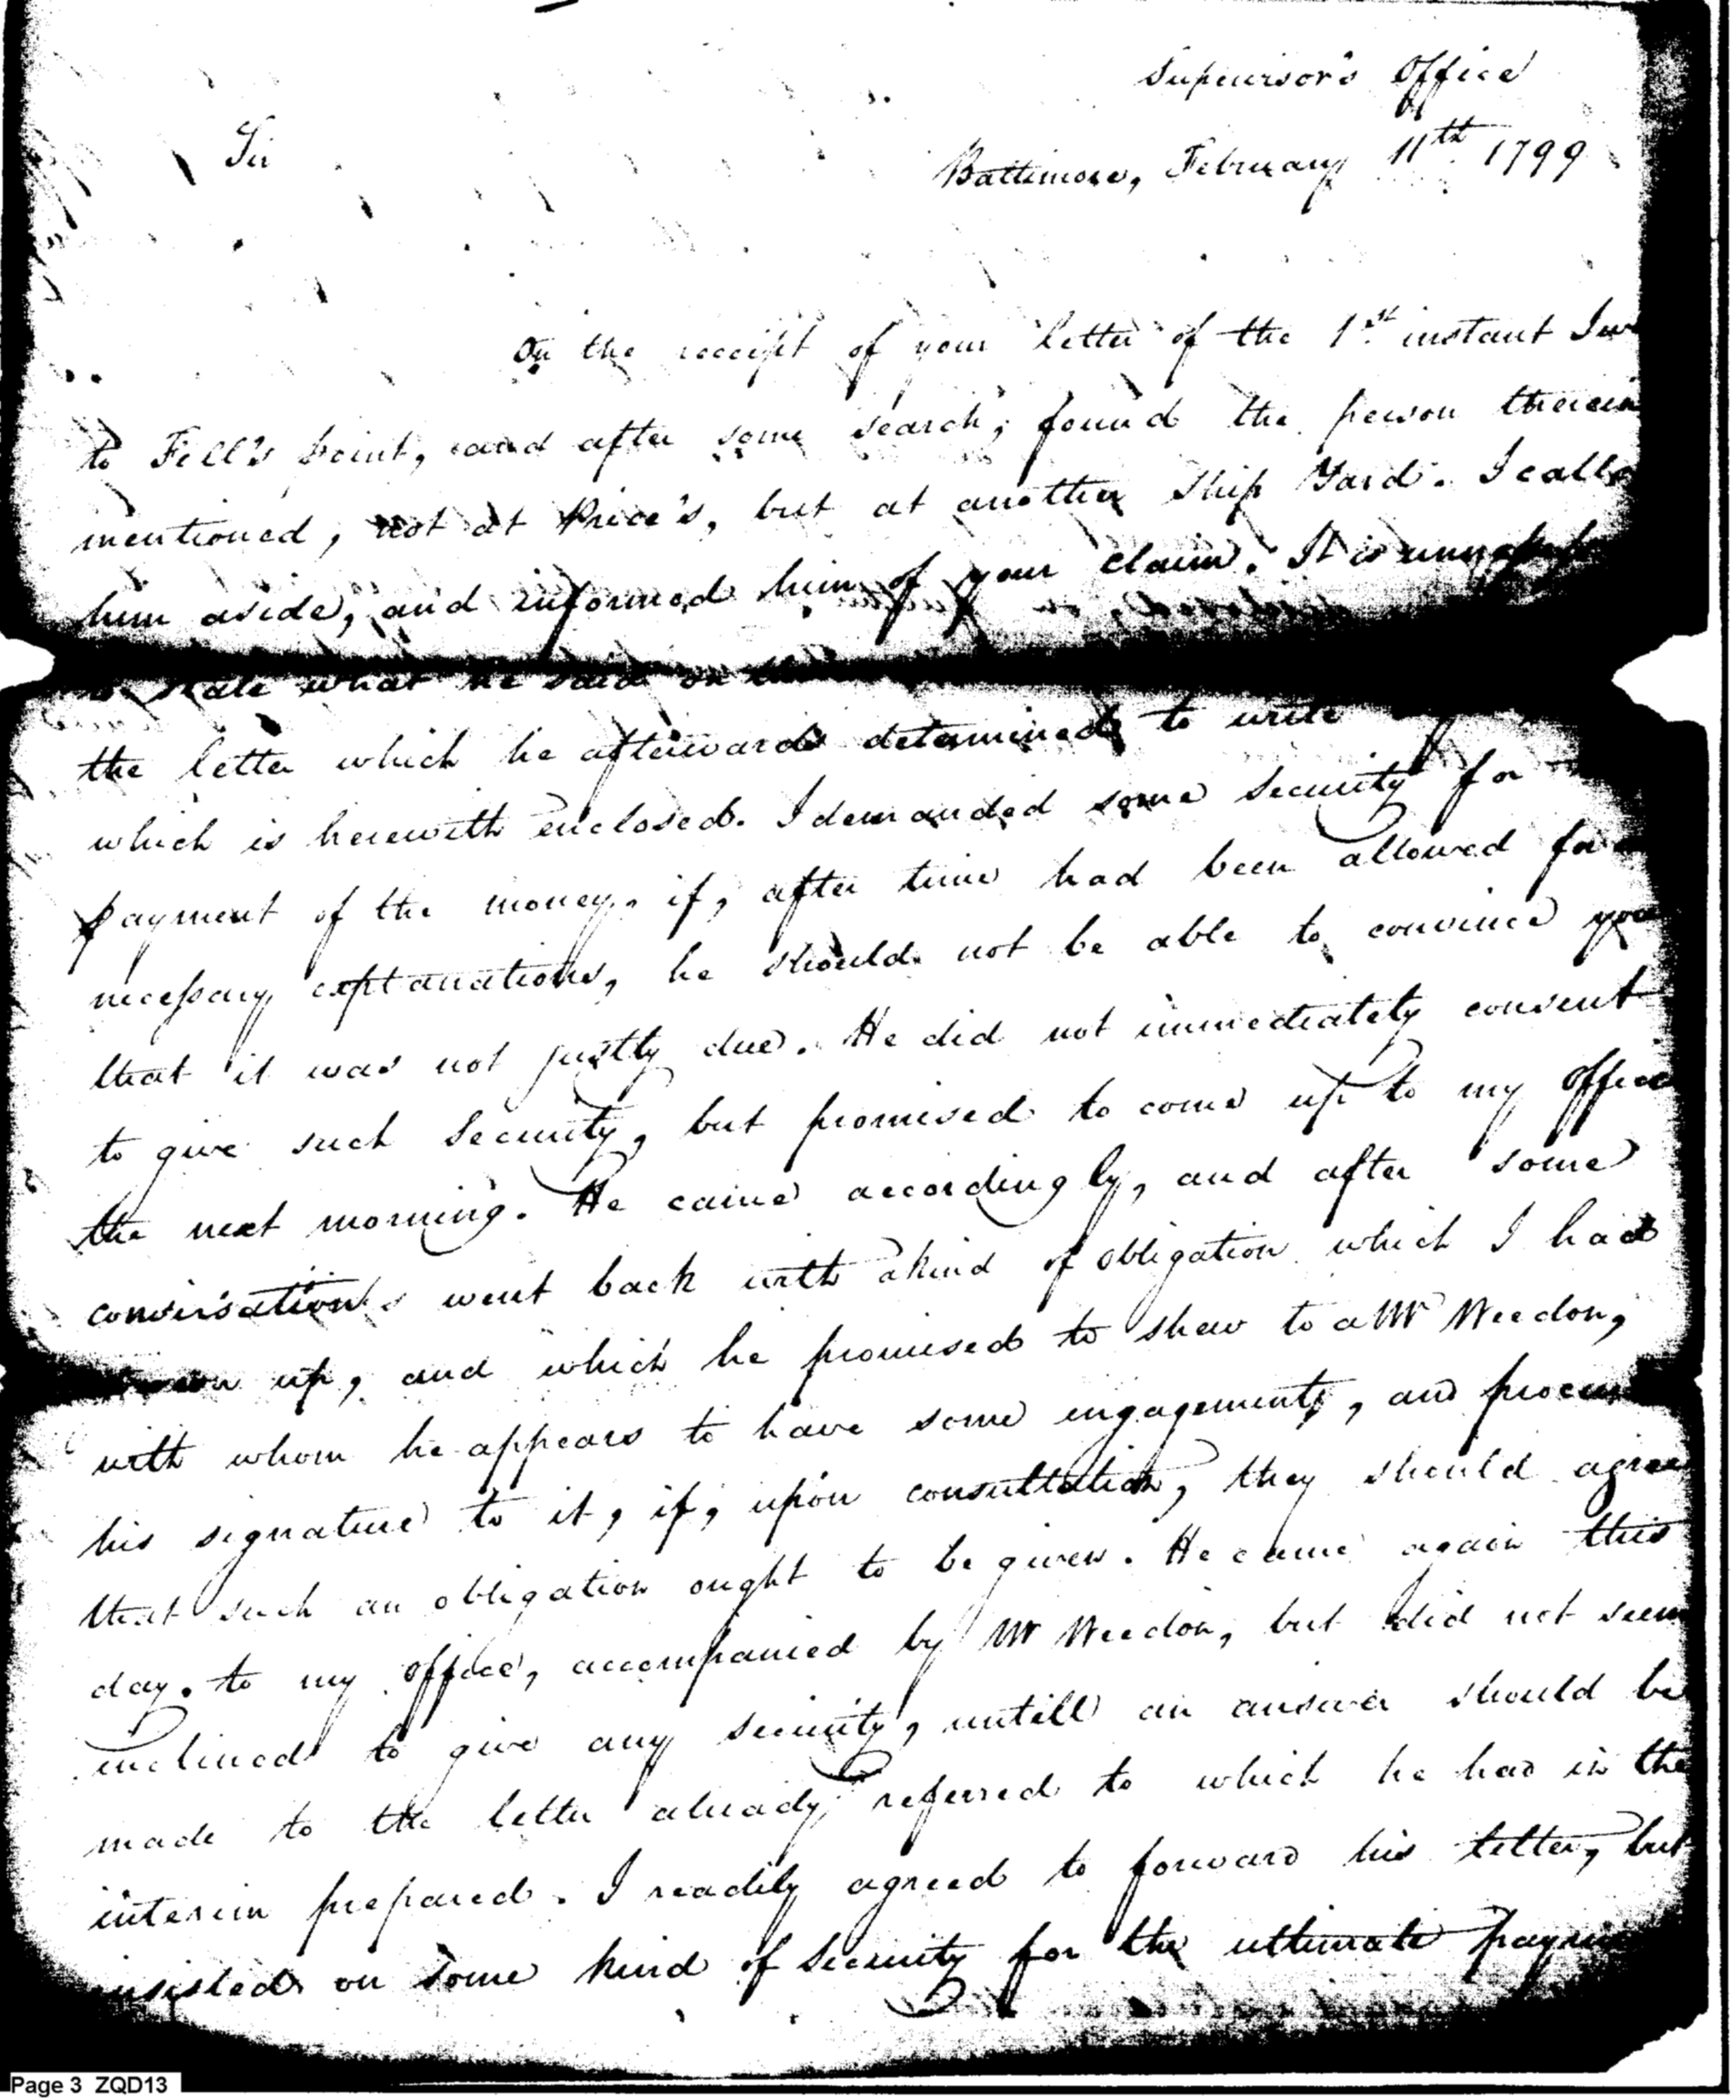 Supervisor's Office
Sir
Baltimore, February 11th 1799
On the receipt of your letter of the 1st instant I
to Fell's Point, and after some search, found the person therein
mentioned, not at Price's, but at another Ship Yard. I
him aside, and informed him of your claim. It is
state what he said on
the letter which he afterwards determined to write
which is herewith enclosed. I demanded some Security for
payment of the money, if, after time had been allowed for
necessary explanations, he should not be able to convince you
that it was not justly due. He did not immediately consent
to give such Security, but promised to come up to my office
the next morning. He came accordingly, and after some
conversation went back with a kind of obligation which I had
up, and which he promised to shew to a Mr Weedon,
with whom he appears to have some engagements, and procure
his signature to it, if, upon consultation, they should agree
that such an obligation ought to be given. He came again this
day to my office, accompanied by Mr Weedon, but did not seem
inclined to give any security, untill an answer should be
made to the letter already referred to which he had in the
interim prepared. I readily agreed to forward his letter, but
insisted on some kind of Security for the ultimate
Page 3 ZQD13